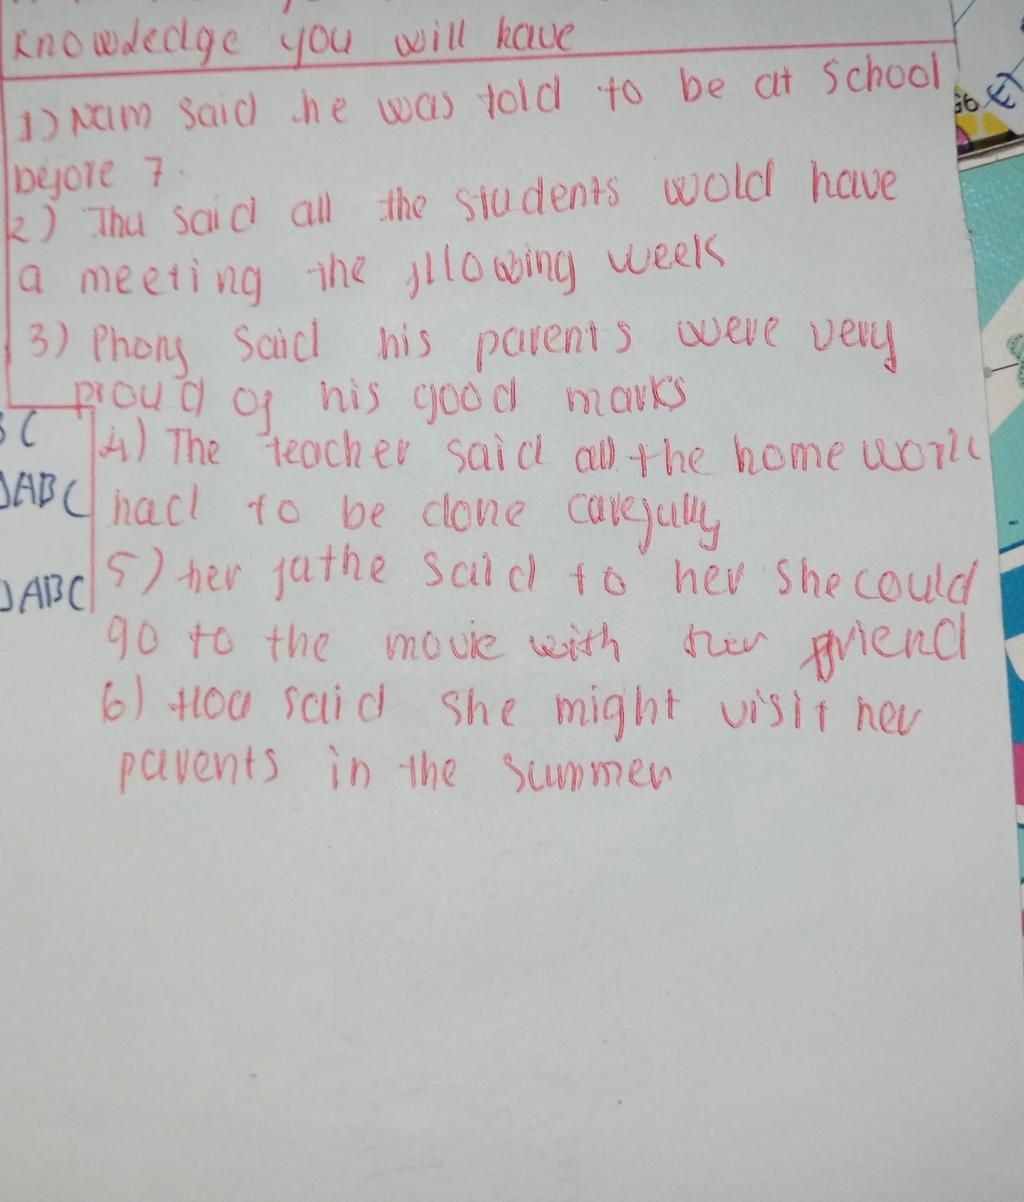 knowledge you will have
1) Nam said he was told to be at school
before 7.
2) Thu said all the students wold have
a meeting the fllowing week
3) Phong said his parents were very
proud of his good marks
BC
4) The teacher said all the home work
ABC
had to be done carefully
5) her fathe said to her she could
ABC
go to the movie with her friend
6) Hoa said she might visit her
parents in the summer